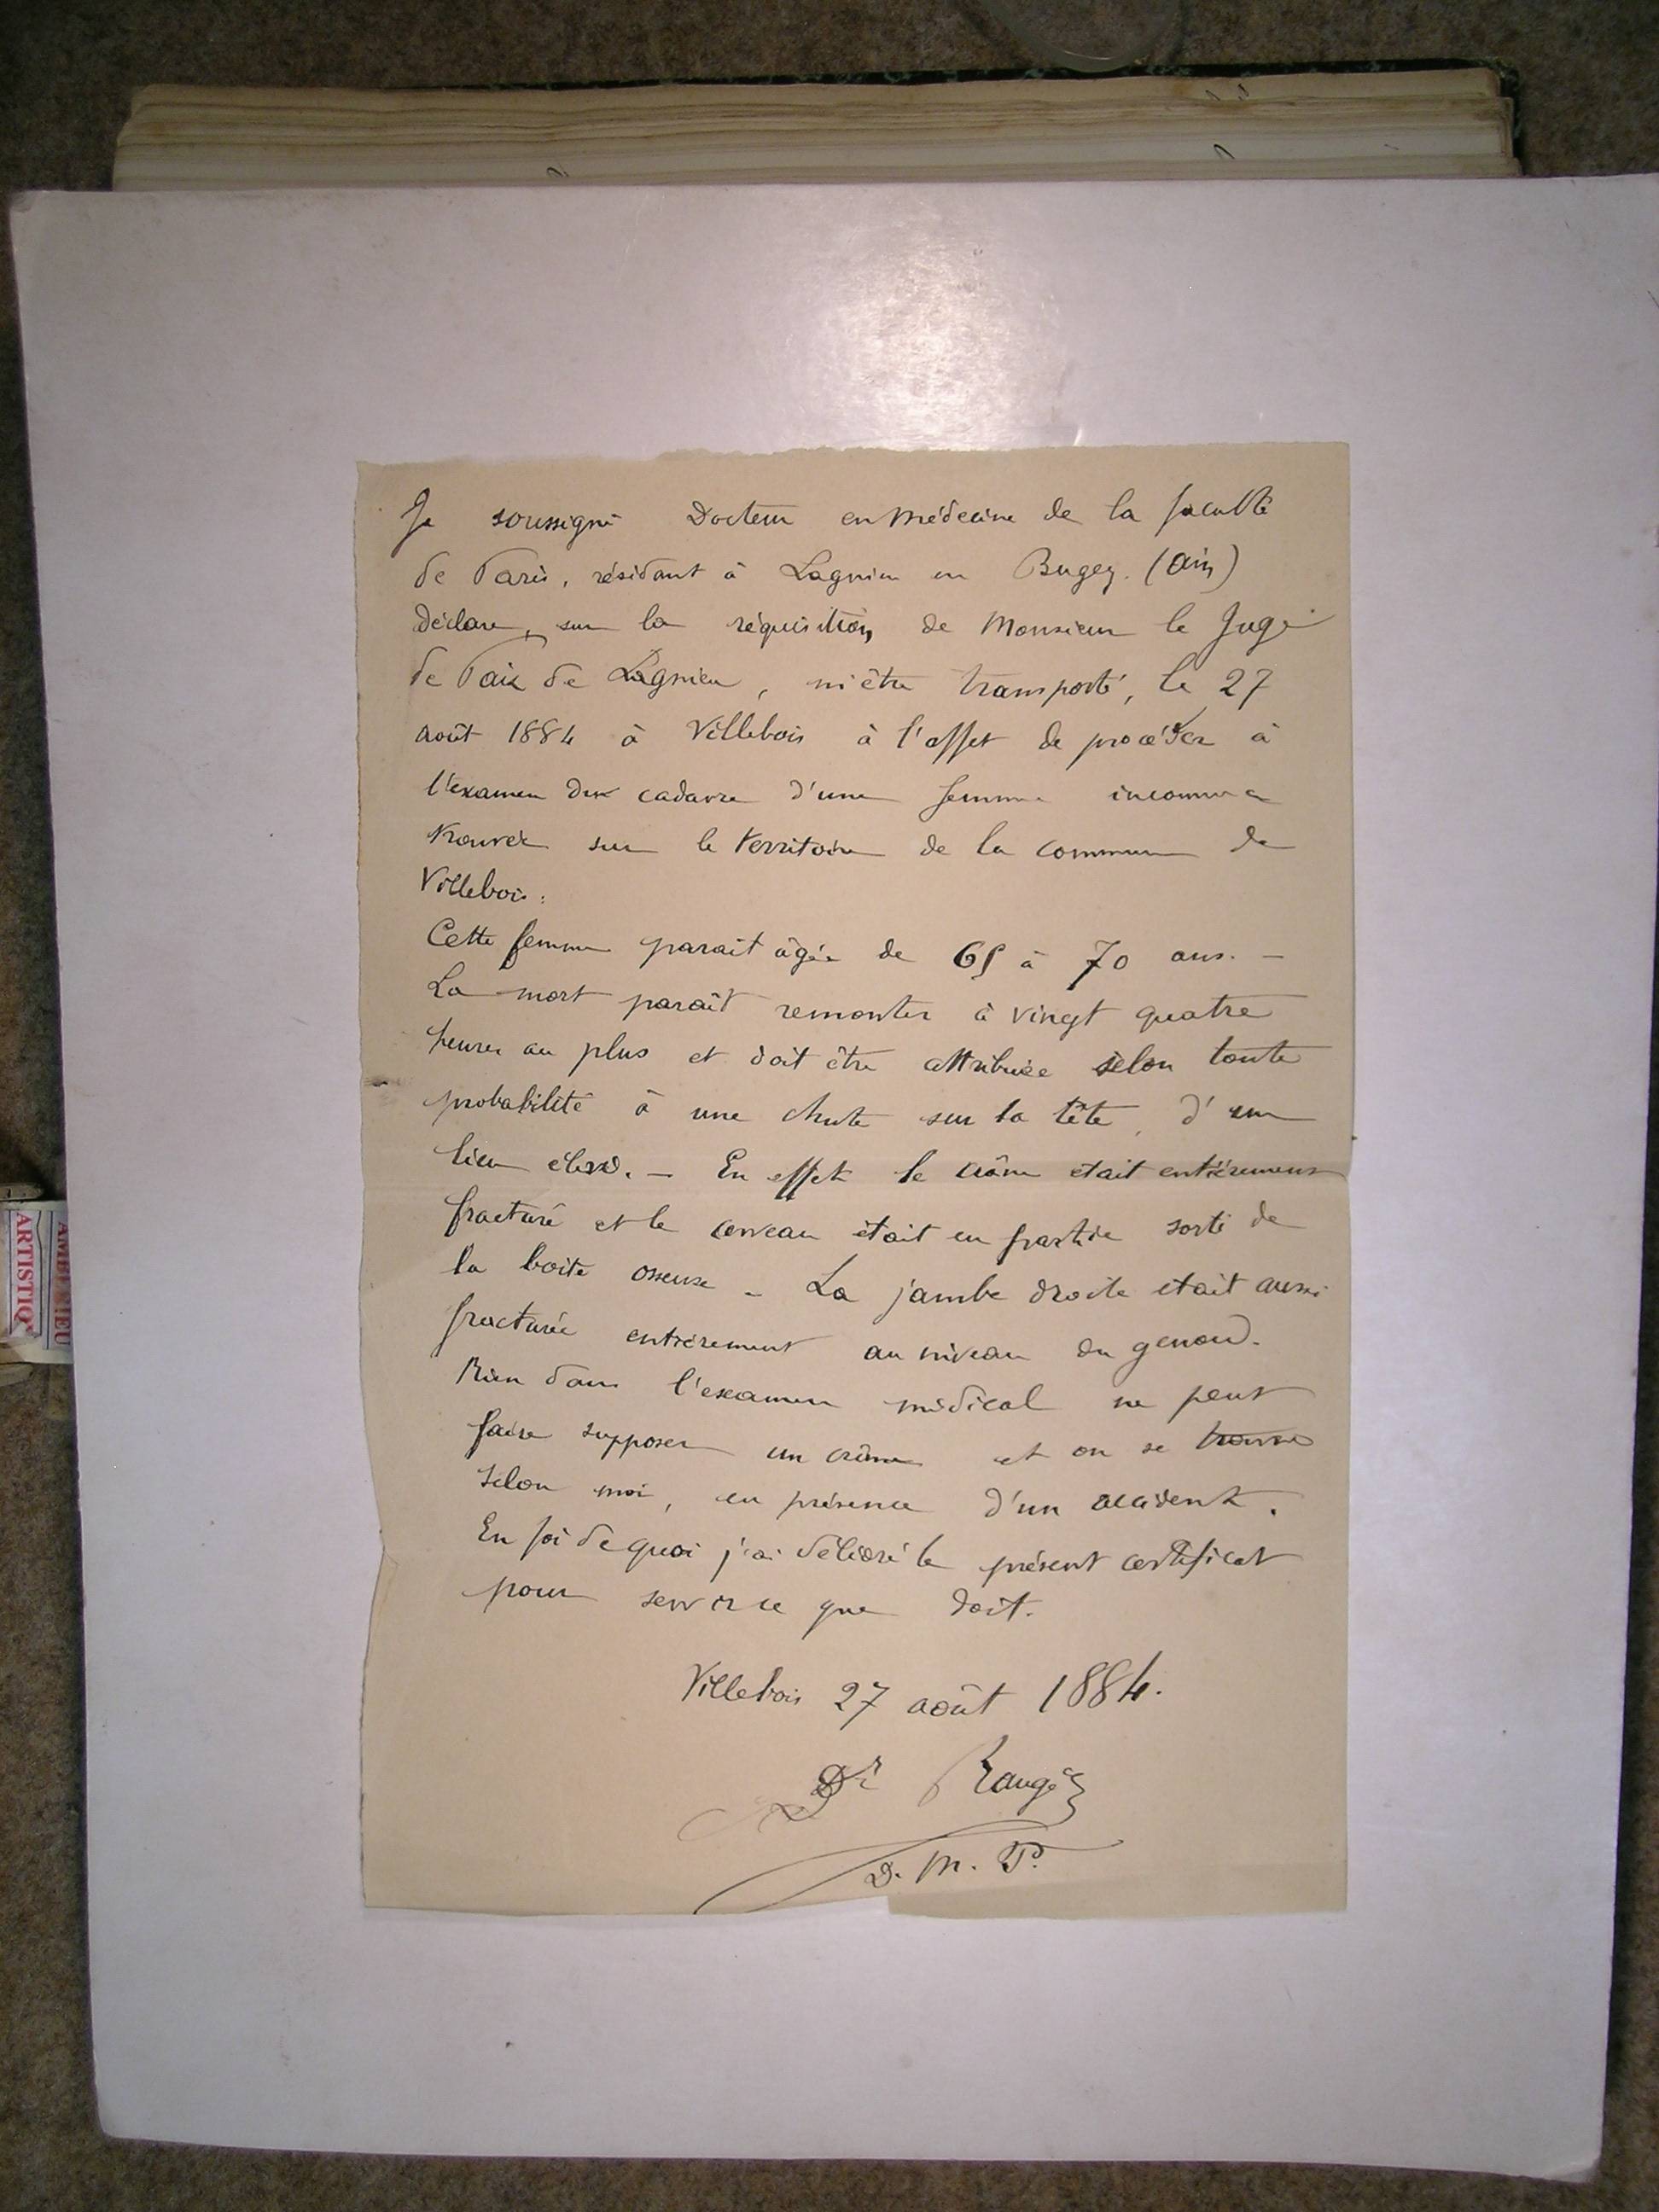 Je soussigné Docteur en Médecine de la faculté
de Paris, résidant à Lagnieu en Bugey. (Ain)
Déclare, sur la réquisition de Monsieur le Juge
de Paix de Lagnieu, m'être transporté, le 27
août 1884 à Villebois à l'effet de procéder à
l'examen du cadavre d'une femme inconnue
trouvée sur le territoire de la commune de
Villebois.
Cette femme parait âgée de 65 à 70 ans. —
La mort paraît remonter à vingt quatre
heures au plus et doit être attribuée selon toute
probabilité à une chute sur la tête, d'un
lieu élevé. — En effet le crâne était entièrement
fracturé et le cerveau était en partie sorti de
la boite osseuse — La jambe droite était aussi
fracturée entièrement au niveau du genou.
Rien dans l'examen médical ne peut
faire supposer un crime et on se trouve
selon moi, en présence d'un accident.
En foi de quoi j'ai délivré le présent certificat
pour servir ce que doit.
Villebois 27 août 1884.
Dr
D. M. P.
ARTISTIQ